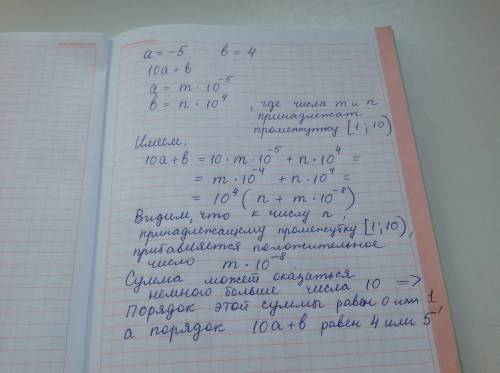 a = -5 в = 4
10a + в
a = m · 10⁻⁵
в = n · 10⁴ , где числа m и n
принадлежат
промежутку [1; 10)
Имеем,
10a + в = 10 · m · 10⁻⁵ + n · 10⁴ =
= m · 10⁻⁴ + n · 10⁴ =
= 10⁴ ( n + m · 10⁻⁸ )
Видим, что к числу n,
принадлежащему промежутку [1; 10),
прибавляется положительное
число m · 10⁻⁸.
Сумма может оказаться
немного больше числа 10 =>
Порядок этой суммы равен 0 или 1,
а порядок 10a + в равен 4 или 5